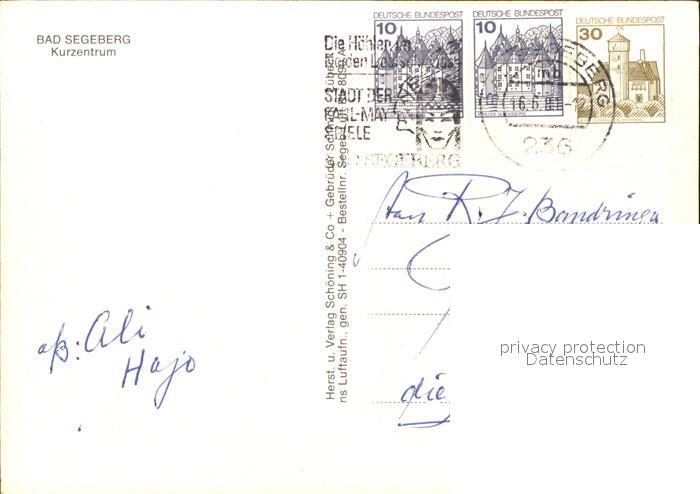 BAD SEGEBERG
Kurzentrum
DEUTSCHE BUNDESPOST
10
DEUTSCHE BUNDESPOST
10
DEUTSCHE BUNDESPOST
30
Die Höhlen im
STADT DER
KARL-MAY
SPIELE
SEGEBERG
236
Herst. u. Verlag Schöning & Co + Gebrüder Schmidt, Lübeck
ns Luftaufn., gen. SH 1-40904 - Bestellnr. Sege
R. J. Bandringa
aß: Ali
Hajo
die
privacy protection
Datenschutz